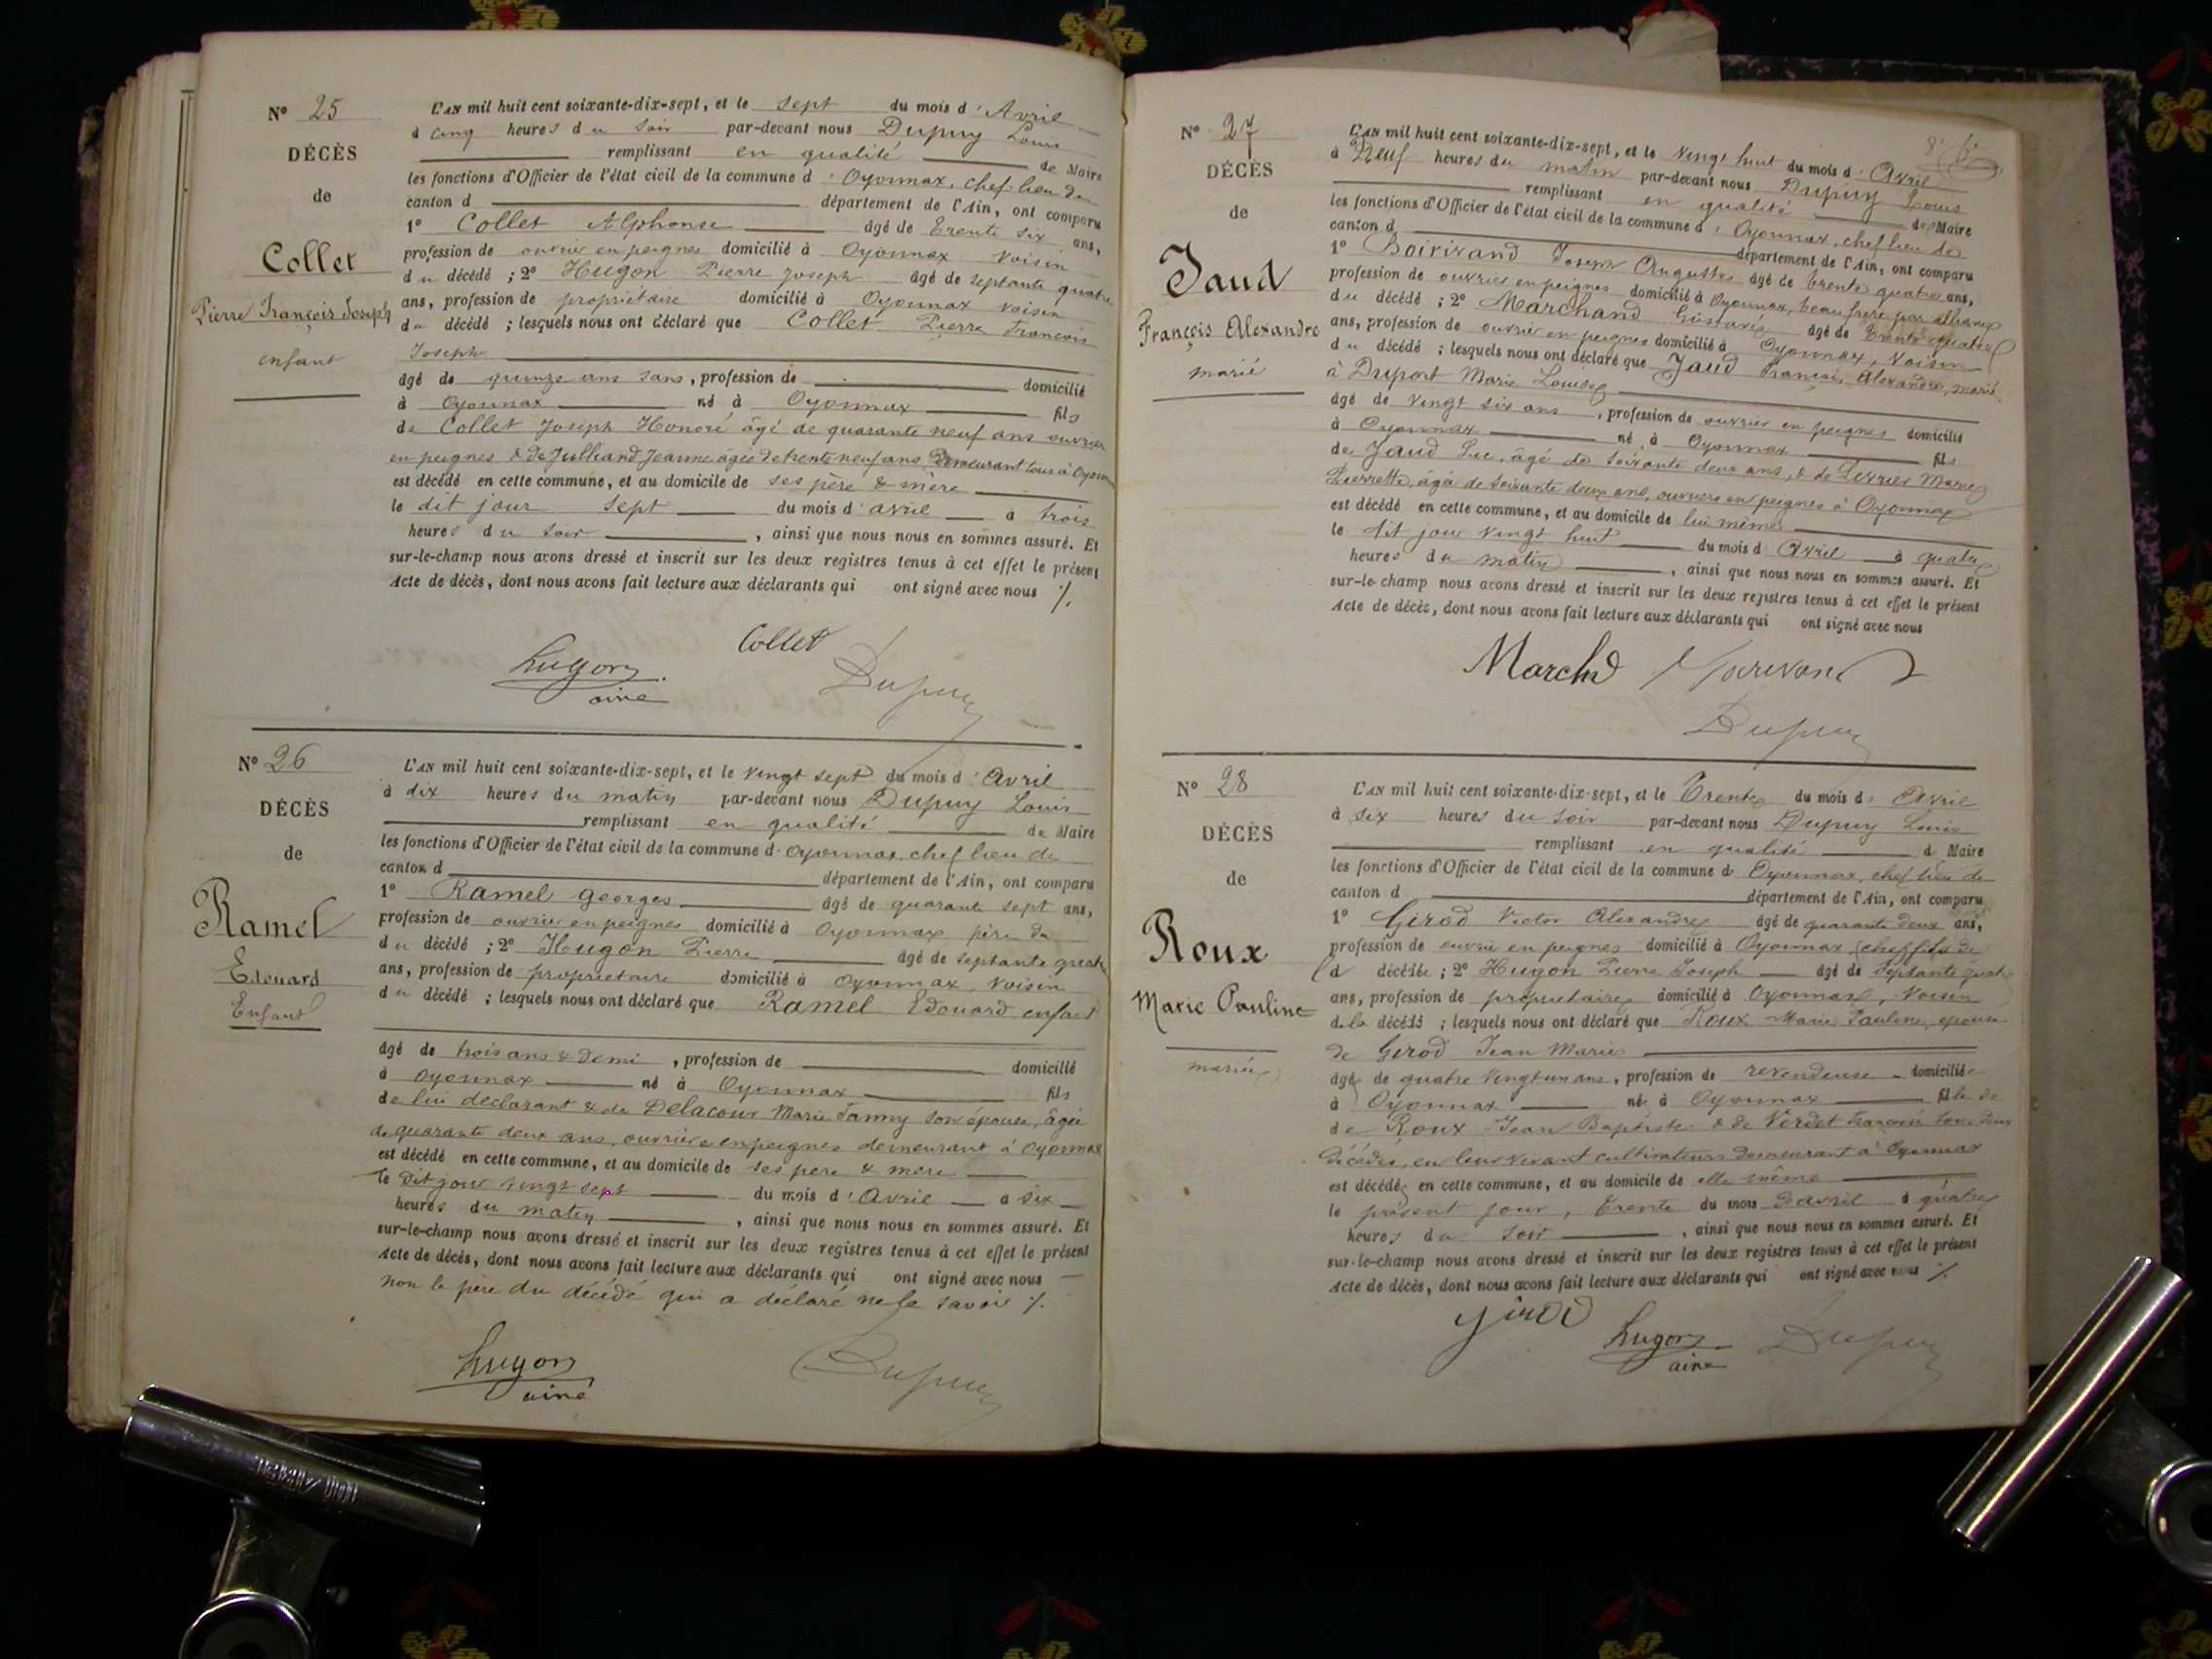 N° 25
DÉCÈS
de
Collet
Pierre François Joseph
enfant
L'AN mil huit cent soixante-dix-sept, et le sept du mois d'Avril
à cinq heures du soir par-devant nous Dupuy Louis
remplissant en qualité de Maire
les fonctions d'Officier de l'état civil de la commune d'Oyonnax, chef-lieu de
canton d département de l'Ain, ont comparu
1° Collet Alphonse âgé de trente six ans,
profession de ouvrier en peignes domicilié à Oyonnax voisin
du décédé ; 2° Hugon Pierre Joseph âgé de septante quatre
ans, profession de propriétaire domicilié à Oyonnax voisin
du décédé ; lesquels nous ont déclaré que Collet Pierre François
Joseph
âgé de quinze ans sans, profession de domicilié
à Oyonnax né à Oyonnax fils
de Collet Joseph Honoré âgé de quarante neuf ans ouvrier
en peignes & de Julliand Jeanne âgée de trente neuf ans demeurant tous à Oyonnax
est décédé en cette commune, et au domicile de ses père & mère
le dit jour sept du mois d'avril à trois
heures du soir, ainsi que nous nous en sommes assuré. Et
sur-le-champ nous avons dressé et inscrit sur les deux registres tenus à cet effet le présent
Acte de décès, dont nous avons fait lecture aux déclarants qui ont signé avec nous ./.
Collet
Hugon
ainé
Dupuy
N° 26
DÉCÈS
de
Ramel
Edouard
Enfant
L'AN mil huit cent soixante-dix-sept, et le vingt sept du mois d'Avril
à dix heures du matin par-devant nous Dupuy Louis
remplissant en qualité de Maire
les fonctions d'Officier de l'état civil de la commune d'Oyonnax, chef lieu de
canton d département de l'Ain, ont comparu
1° Ramel Georges âgé de quarante sept ans,
profession de ouvrier en peignes domicilié à Oyonnax père du
du décédé ; 2° Hugon Pierre âgé de septante quatre
ans, profession de propriétaire domicilié à Oyonnax, voisin
du décédé ; lesquels nous ont déclaré que Ramel Edouard enfant
âgé de trois ans & demi, profession de domicilié
à Oyonnax né à Oyonnax fils
de lui déclarant & de Delacour Marie Fanny son épouse, âgée
de quarante deux ans, ouvrière en peignes demeurant à Oyonnax
est décédé en cette commune, et au domicile de ses père & mère
le dit jour vingt sept du mois d'Avril à six
heures du matin, ainsi que nous nous en sommes assuré. Et
sur-le-champ nous avons dressé et inscrit sur les deux registres tenus à cet effet le présent
Acte de décès, dont nous avons fait lecture aux déclarants qui ont signé avec nous
non le père du décédé qui a déclaré ne le savoir ./.
Hugon
ainé
Dupuy
N° 27
DÉCÈS
de
Jaud
François Alexandre
marié
L'AN mil huit cent soixante-dix-sept, et le vingt huit du mois d'Avril
à Neuf heures du matin par-devant nous Dupuy Louis
remplissant en qualité de Maire
les fonctions d'Officier de l'état civil de la commune d'Oyonnax, chef lieu de
canton d département de l'Ain, ont comparu
1° Joseph Auguste âgé de trente quatre ans,
profession de ouvrier en peignes domicilié à Oyonnax, beau frère par alliance
du décédé ; 2° Marchand Gustave âgé de trente quatre
ans, profession de ouvrier en peignes domicilié à Oyonnax, voisin
du décédé ; lesquels nous ont déclaré que Jaud François Alexandre, marié
à Duport Marie Louise
âgé de vingt six ans, profession de ouvrier en peignes domicilié
à Oyonnax né à Oyonnax fils
de Jaud Luc, âgé de soixante deux ans, & de Marie
Pierrette, âgée de soixante deux ans, ouvriers en peignes à Oyonnax
est décédé en cette commune, et au domicile de lui même
le dit jour vingt huit du mois d'Avril à quatre
heures du matin, ainsi que nous nous en sommes assuré. Et
sur-le-champ nous avons dressé et inscrit sur les deux registres tenus à cet effet le présent
Acte de décès, dont nous avons fait lecture aux déclarants qui ont signé avec nous
Marchd
Dupuy
N° 28
DÉCÈS
de
Roux
Marie Pauline
mariée
L'AN mil huit cent soixante-dix-sept, et le Trente du mois d'Avril
à six heures du soir par-devant nous Dupuy Louis
remplissant en qualité d Maire
les fonctions d'Officier de l'état civil de la commune d'Oyonnax, chef lieu de
canton d département de l'Ain, ont comparu
1° Girod Victor Alexandre âgé de quarante deux ans,
profession de ouvrier en peignes domicilié à Oyonnax, fils de
la décédée ; 2° Hugon Pierre Joseph âgé de septante quatre
ans, profession de propriétaire domicilié à Oyonnax, voisin
de la décédé ; lesquels nous ont déclaré que Roux Marie Pauline, épouse
de Girod Jean Marie
âgée de quatre vingt un ans, profession de revendeuse domiciliée
à Oyonnax née à Oyonnax fille de
de Roux Jean Baptiste & de Verdet Françoise tous deux
décédés, en leur vivant cultivateurs demeurant à Oyonnax
est décédée en cette commune, et au domicile de elle même
le présent jour, trente du mois d'avril à quatre
heures du soir, ainsi que nous nous en sommes assuré. Et
sur-le-champ nous avons dressé et inscrit sur les deux registres tenus à cet effet le présent
Acte de décès, dont nous avons fait lecture aux déclarants qui ont signé avec nous ./.
Girod
Hugon
ainé
Dupuy